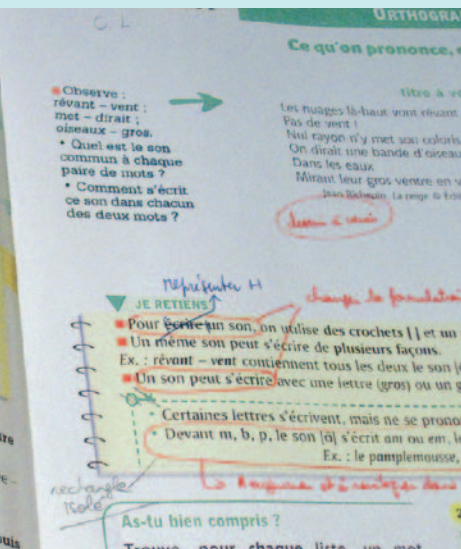 ORTHOGRA
C L
Ce qu'on prononce,
titre à
Observe :
rêvant – vent ;
met – dirait ;
oiseaux – gros.
• Quel est le son
commun à chaque
paire de mots ?
• Comment s'écrit
ce son dans chacun
des deux mots ?
Les nuages là-haut vont rêvant
Pas de vent !
Nul rayon n'y met son coloris
On dirait une bande d'oiseau
Dans les eaux
Mirant leur gros ventre en
Jean Richepin, La neige
représenter
changer la formulation
JE RETIENS
Pour écrire un son, on utilise des crochets [ ] et un
Un même son peut s'écrire de plusieurs façons.
Ex. : rêvant – vent contiennent tous les deux le son
Un son peut s'écrire avec une lettre (gros) ou un g
• Certaines lettres s'écrivent, mais ne se prono
• Devant m, b, p, le son [ã] s'écrit am ou em, le
Ex. : le pamplemousse,
rectangle
isolé
As-tu bien compris ?
2
Trouve, pour chaque liste, un mot
ire
puis